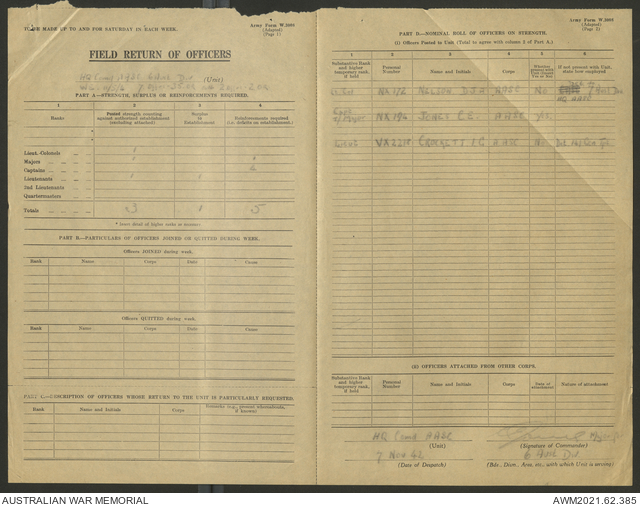 TO BE MADE UP TO AND FOR SATURDAY IN EACH WEEK.
Army Form W.3008
(Adapted)
(Page 1)
FIELD RETURN OF OFFICERS
(Unit)
PART A—STRENGTH, SURPLUS OR REINFORCEMENTS REQUIRED.
1 2 3 4
Ranks
Posted strength counting against authorised establishment (excluding attached)
Number in Establishment
Reinforcements required (i.e. deficits on establishment.)
Lieut.-Colonels
Majors
Captains
Lieutenants
2nd Lieutenants
Quartermasters
Totals 3 1 5
* Insert detail of higher ranks as necessary.
PART B.—PARTICULARS OF OFFICERS JOINED OR QUITTED DURING WEEK.
Officers JOINED during week.
Rank Name Corps Date Cause
Officers QUITTED during week.
Rank Name Corps Date Cause
PART C.—DESCRIPTION OF OFFICERS WHOSE RETURN TO THE UNIT IS PARTICULARLY REQUESTED.
Rank Name and Initials Corps Remarks (e.g., present whereabouts, if known)
Army Form W.3008
(Adapted)
(Page 2)
PART D—NOMINAL ROLL OF OFFICERS ON STRENGTH.
(i) Officers Posted to Unit (Total to agree with column 2 of Part A.)
1 2 3 4 5 6
Substantive Rank and higher temporary rank, if held
Personal Number
Name and Initials
Corps
Whether present with Unit (Answer Yes or No)
If not present with Unit, state how employed
NX 172 NELSON D.S.A AASC No
NX 194 JONES C.E AASC Yes
CROCKETT I C AASC No
(ii) OFFICERS ATTACHED FROM OTHER CORPS.
Substantive Rank and higher temporary rank, if held
Personal Number
Name and Initials
Corps
Date of attachment
Nature of attachment
HQ Comd AASC
(Unit)
(Signature of Commander)
7 Nov 42
(Date of Despatch)
6 Aust Div
(Bde., Divn., Area, etc., with which Unit is serving)
AUSTRALIAN WAR MEMORIAL
AWM2021.62.385